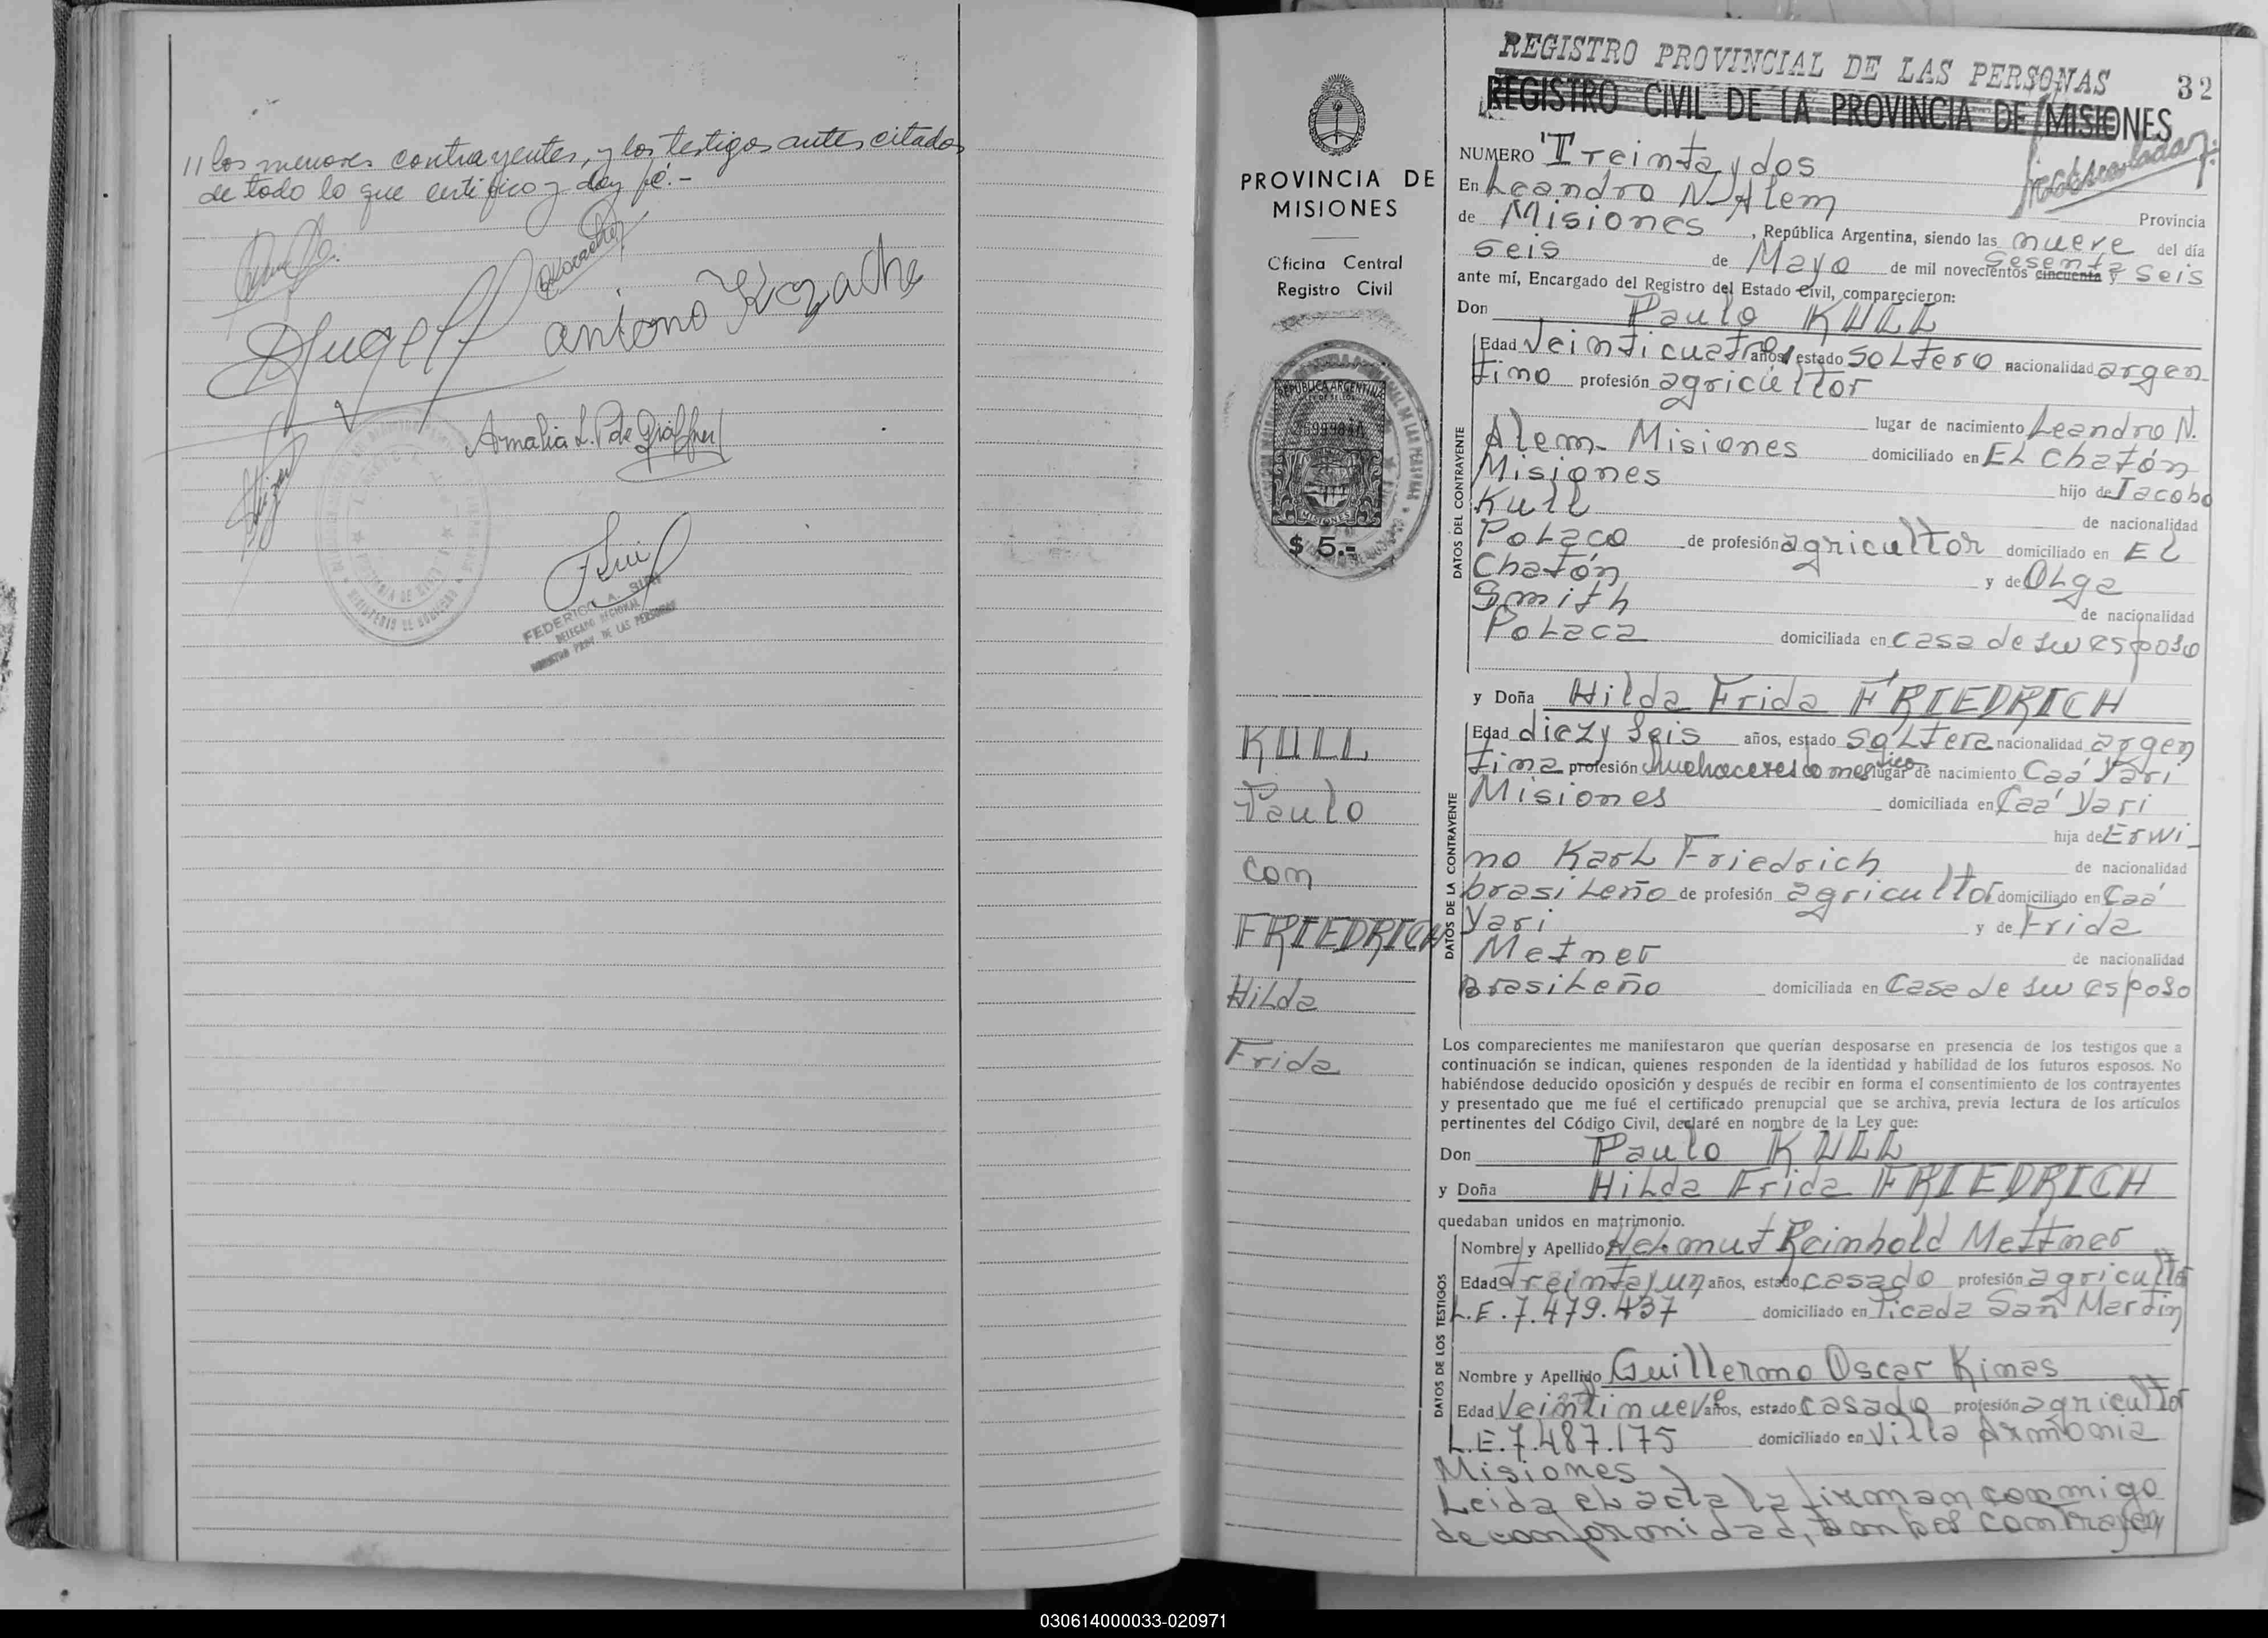 // los menores contrayentes, y los testigos antes citados
de todo lo que certifico y doy fé.-
antonio Kozachek
Amalia L. P de
FEDERICO A.
DELEGADO REGIONAL
REGISTRO PROV. DE LAS PERSONAS
PROVINCIA DE
MISIONES
Oficina Central
Registro Civil
REPUBLICA ARGENTINA
MISIONES
$ 5.-
KULL
Paulo
con
FRIEDRICH
Hilda
Frida
REGISTRO PROVINCIAL DE LAS PERSONAS
32
REGISTRO CIVIL DE LA PROVINCIA DE MISIONES
NUMERO Treinta y dos
En Leandro N. Alem
Provincia
de Misiones, República Argentina, siendo las nueve del día
seis de Mayo de mil novecientos cincuenta y sesenta seis
ante mí, Encargado del Registro del Estado Civil, comparecieron:
Don Paulo KULL
DATOS DEL CONTRAYENTE
Edad Veinticuatro años, estado soltero nacionalidad argen
tino profesión agricultor
lugar de nacimiento Leandro N.
Alem- Misiones domiciliado en El Chatón
Misiones
hijo de Jacobo
Kull
de nacionalidad
Polaco de profesión agricultor domiciliado en El
Chatón y de Olga
Smith
de nacionalidad
Polaca domiciliada en casa de su esposo
y Doña Hilda Frida FRIEDRICH
DATOS DE LA CONTRAYENTE
Edad diez y seis años, estado soltera nacionalidad argen
tina profesión quehaceres domestico lugar de nacimiento Caá Yari
Misiones domiciliada en Caá Yari
hija de Erwi_
no Karl Friedrich de nacionalidad
brasileño de profesión agricultor domiciliado en Caá
Yari y de Frida
Metner de nacionalidad
Brasileño domiciliada en Casa de su esposo
Los comparecientes me manifestaron que querían desposarse en presencia de los testigos que a
continuación se indican, quienes responden de la identidad y habilidad de los futuros esposos. No
habiéndose deducido oposición y después de recibir en forma el consentimiento de los contrayentes
y presentado que me fué el certificado prenupcial que se archiva, previa lectura de los artículos
pertinentes del Código Civil, declaré en nombre de la Ley que:
Don Paulo KULL
y Doña Hilda Frida FRIEDRICH
quedaban unidos en matrimonio.
DATOS DE LOS TESTIGOS
Nombre y Apellido Helmut Reinhold Mettner
Edad treinta y un años, estado casado profesión agricultor
L.E. 7.479.437 domiciliado en Picada San Martin
Nombre y Apellido Guillermo Oscar Kimas
Edad Veintinueve años, estado casado profesión agricultor
L.E. 7.487.175 domiciliado en Villa Armonia
Misiones
Leida el acta la firman conmigo
de conformidad, ambos contrayen
030614000033-020971